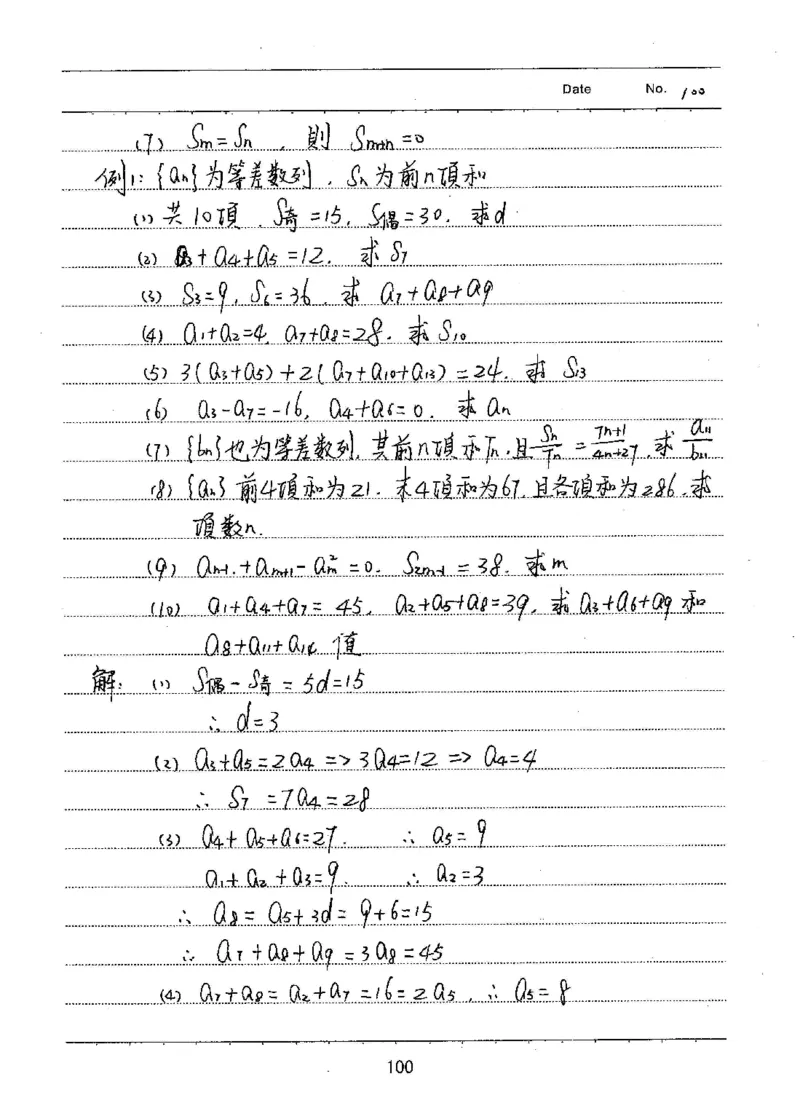 Date No. 100
(7) Sm=Sn , 則 Sm+n=0
例1: {an}为等差数列 , Sn为前n項和
(1) 共10項 . S奇=15, S偶=30. 求d
(2) a3+a4+a5=12. 求S7
(3) S3=9, S6=36. 求 a7+a8+a9
(4) a1+a2=4, a7+a8=28. 求S10
(5) 3(a3+a5)+2(a7+a10+a13)=24. 求 S13
(6) a3-a7=-16, a4+a6=0. 求 an
(7) {bn}也为等差数列, 其前n項和Tn, 且 Sn/Tn = 7n+1/4n+27, 求 a11/b11
(8) {an} 前4項和为21. 末4項和为67, 且各項和为286. 求
項数n.
(9) am-1+am+1-am²=0. S2m-1=38. 求m
(10) a1+a4+a7=45, a2+a5+a8=39, 求 a3+a6+a9 和
a8+a11+a14 值
解: (1) S偶-S奇=5d=15
∴ d=3
(2) a3+a5=2a4 => 3a4=12 => a4=4
∴ S7=7a4=28
(3) a4+a5+a6=27. ∴ a5=9
a1+a2+a3=9. ∴ a2=3
∴ a8=a5+3d=9+6=15
∴ a7+a8+a9=3a8=45
(4) a7+a8=a2+a7=16=2a5, ∴ a5=8
100